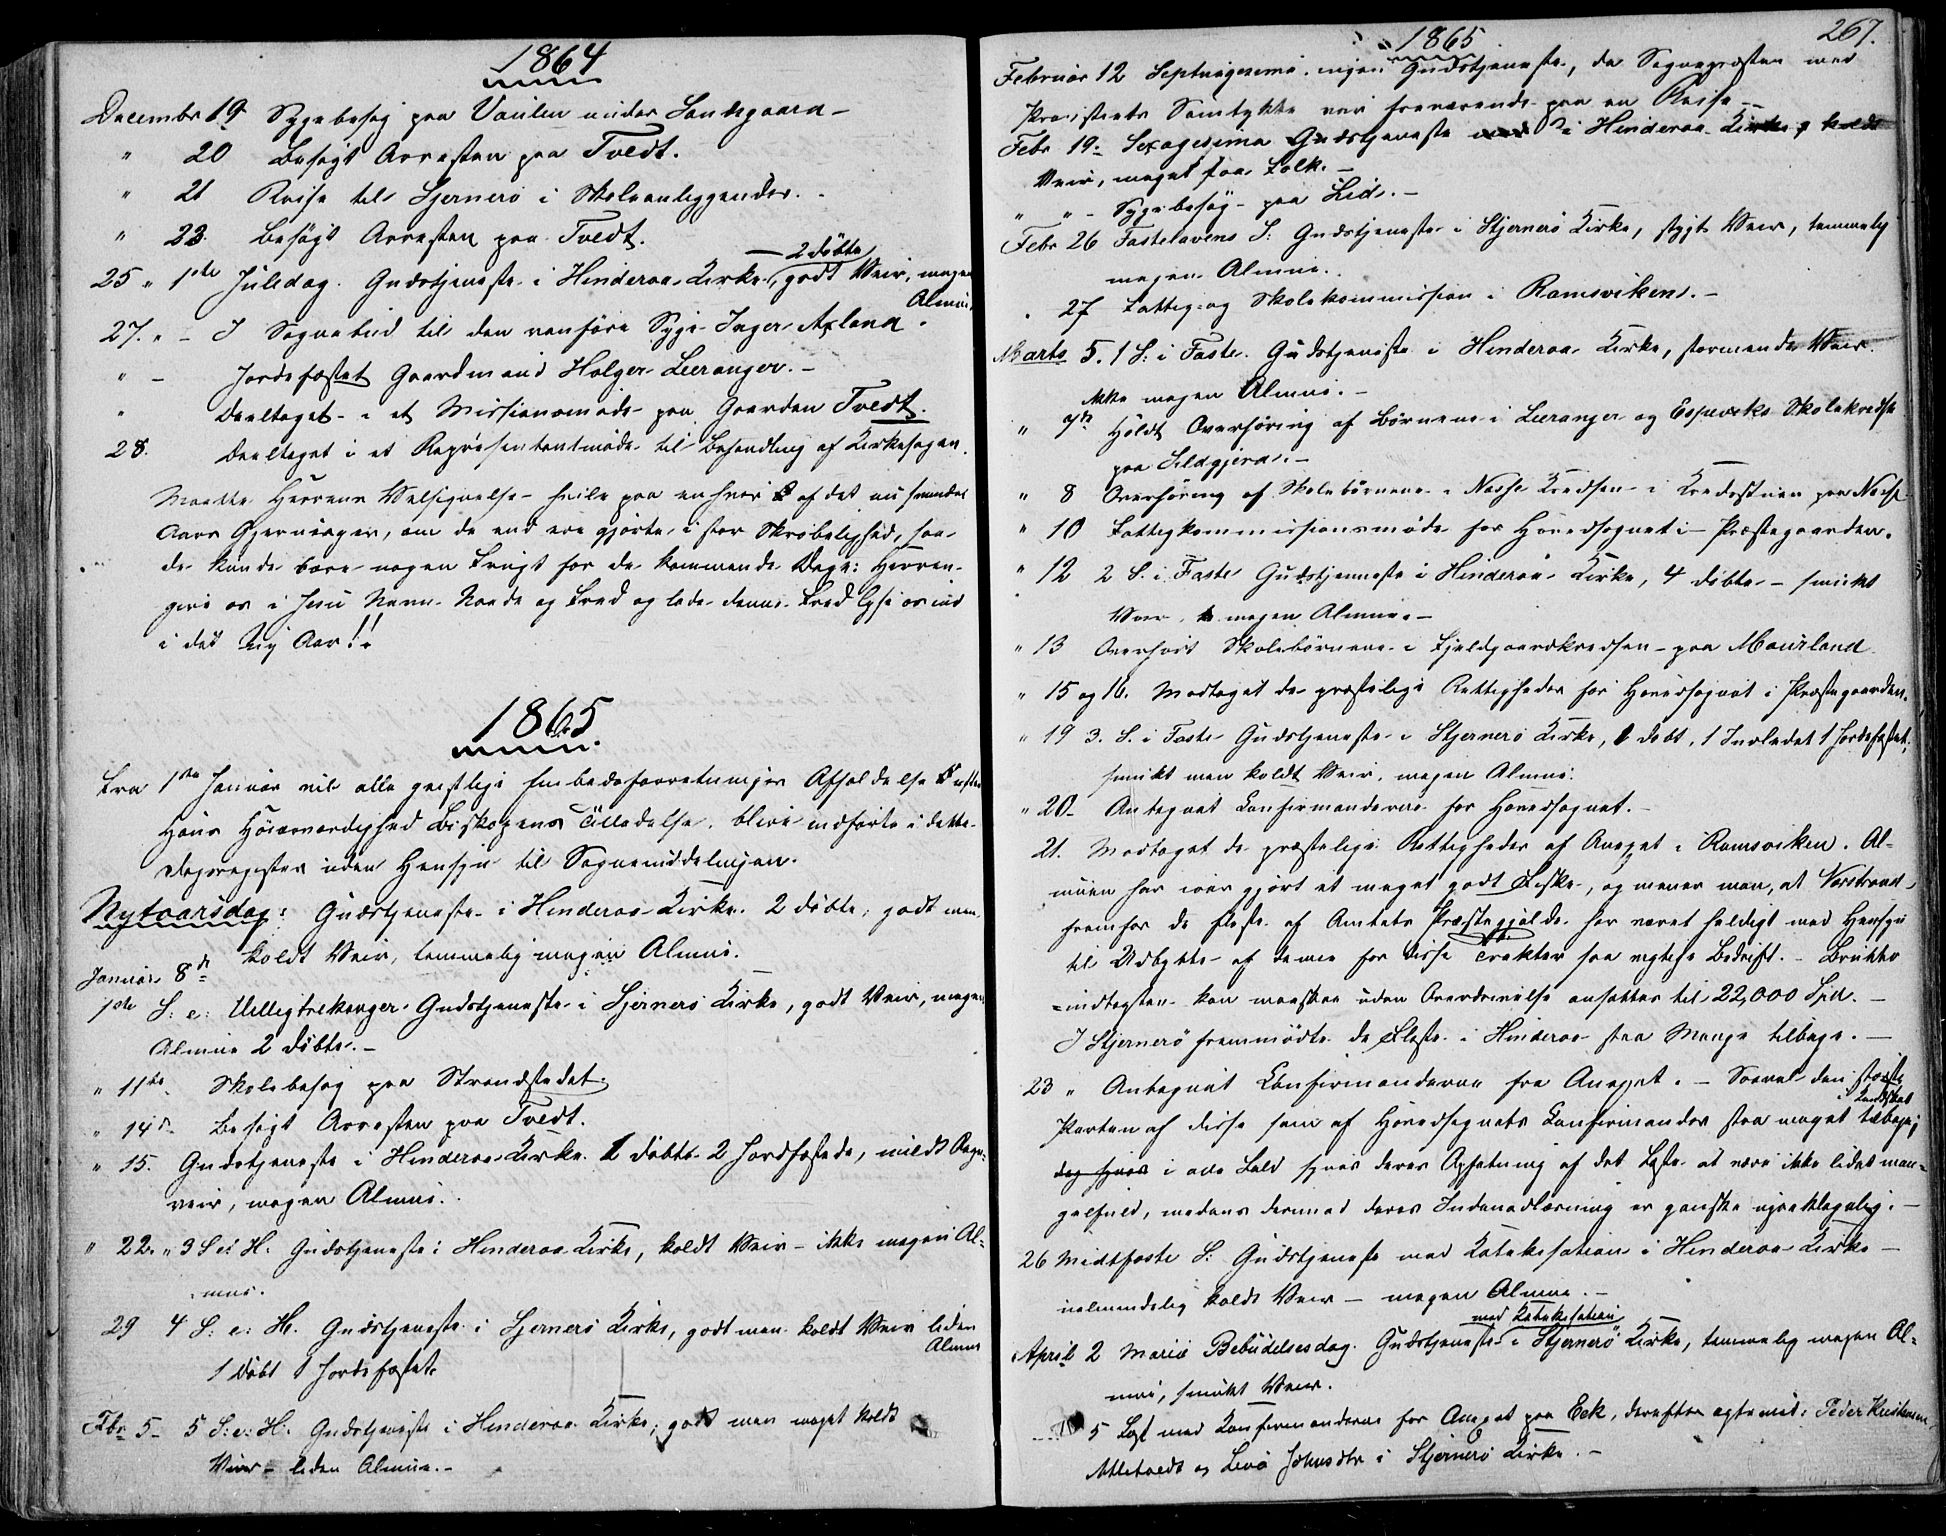 1864
Decembr 19 Sygebesøg paa Vaulen under Landsgaard –
" 20 Besøgt Arresten paa Tvedt.
" 21 Reise til Sjernerö i Skoleanliggender. –
" 23. Besøgt Arresten paa Tvedt.
25 " 1ste Juledag. Gudstjeneste i Hinderaa Kirke, 2 döbte, godt Veir, megen Almue.
27. " – I Sognebud til den vanföre Syge Inger Axland.
" – Jordsfæstet Gaardmand Holger Leeranger. –
" Deeltaget i et Missionsmøde paa Gaarden Tvedt.
28. Deeltaget i et Repræsentantmøde til Behandling af Kirkesagen.
Maatte Herrens Velsignelse hvile paa enhver af det nu svundne
Aars Gjerninger, om de end ere gjorte i stor Skrøbelighed, saa
de kunde bære nogen Frugt for de kommende Dage: Herren
give os i Jesu Navn Naade og Fred og lade denne Fred lyse os ind
i det Ny Aar!!
1865.
Fra 1ste Januar vil alle geistlige Embedsforretninger efter
Hans Höiærværdighed Biskopens Tilladelse, blive indførte i dette
Dagsregister uden Hensyn til Sogneinddelingen.
Nytaarsdag: Gudstjeneste i Hinderaa Kirke. 2 döbte, godt men
koldt Veir, temmelig megen Almue.
Januar 8de
1ste S: e: Helligtrekonger Gudstjeneste i Sjernerö Kirke, godt Veir, megen
Almue 2 döbte. –
" 11te Skolebesøg paa Strandstedet.
" 14de Besøgt Arresten paa Tvedt.
" 15. Gudstjeneste i Hinderaa Kirke. 1 döbt 2 Jordfæstede, mildt Regn-
veir, megen Almue.
" 22. " 3 S e: H. Gudstjeneste i Hinderaa Kirke, koldt Veir – ikke megen Al-
mue.
29 4 S: e: H. Gudstjeneste i Sjernerö Kirke, godt men koldt Veir liden Almue
1 Döbt 1 Jordsfæstet
Fbr 5 – 5 S: e: H: Gudstjeneste i Hinderaa Kirke, godt men meget koldt
Veir – liden Almue. –
1865
267.
Februar 12 Septuagesima ingen Gudstjeneste, da Sognepræsten med
Provstens Samtykke var fraværende paa en Reise –
Febr 19. Sexagesima Gudstjeneste i Hinderaa Kirke, koldt
Veir, meget faa Folk. –
" " – Sygebesøg paa Lid. –
Febr 26 Fastelavens S: Gudstjeneste i Stjernerö Kirke, stygt Veir, temmelig
megen Almue.
" 27 Fattig- og Skolekommission i Ramsviken. –
Marts 5. 1 S: i Faste. Gudstjeneste i Hinderaa Kirke, stormende Veir.
ikke megen Almue. –
" 7de Holdt Overhøring af Børnene i Leeranger og Espeviks Skolekredse
paa Sildgjerde. –
" 8 Overhøring af Skolebørnene i Næsse Kredsen i Kredsstuen paa Næsse
" 10 Fattigkommissionsmøde for Hovedsognet i Præstegaarden.
" 12 2 S. i Faste Gudstjeneste i Hinderaa Kirke, 4 döbte – smukt
Veir, megen Almue. –
" 13 Overhørt Skolebørnene i Fjeldgaardkredsen paa Mourland.
" 15 og 16. Modtaget de præstelige Rettigheder for Hovedsognet i Præstegaarden.
" 19 3. S. i Faste Gudstjeneste i Stjernerö Kirke, 1 døbt, 1 Indledet 1 Jordsfæstet,
smukt men koldt Veir, megen Almue.
" 20 – Antegnet Konfirmanderne for Hovedsognet. –
21. Modtaget de præstelige Rettigheder af Anexet i Ramsviken. Al-
muen har iaar gjort et meget godt Fiske, og mener man, at Nærstrand
fremfor de fleste af Amtets Præstegjælde har været heldigt med Hensyn
til Udbytte af denne for disse Trakter saa vigtige Bedrift. – Brutto
indtægten kan maaskee uden Overdrivelse ansættes til 22,000 Spd. –
I Stjernerö fremmødte de Fleste i Hinderaa staa Mange tilbage. –
23 " Antegnet Konfirmanderne fra Anexet. – Saavel den største
Parten af disse som af Hovedsognets Konfirmander staa meget i Kundskab tilbage;
i alle Fald synes deres Opfatning af det Læste at være ikke lidet man-
gelfuld, medens derimod deres Indenadlæsning er ganske upaaklagelig. –
26 Midtfaste S: Gudstjeneste med Katekisation i Hinderaa Kirke –
ualmindelig koldt Veir – megen Almue. –
April 2 Mariæ Bebudelsesdag. Gudstjeneste med Katekisation i Stjernerö Kirke, temmelig megen Al-
mue, smukt Veir.
5 Læst med Konfirmanderne for Anexet paa Eek, derefter egteviet: Peder Kristensen
og Johnsdtr i Stjernerö Kirke. –